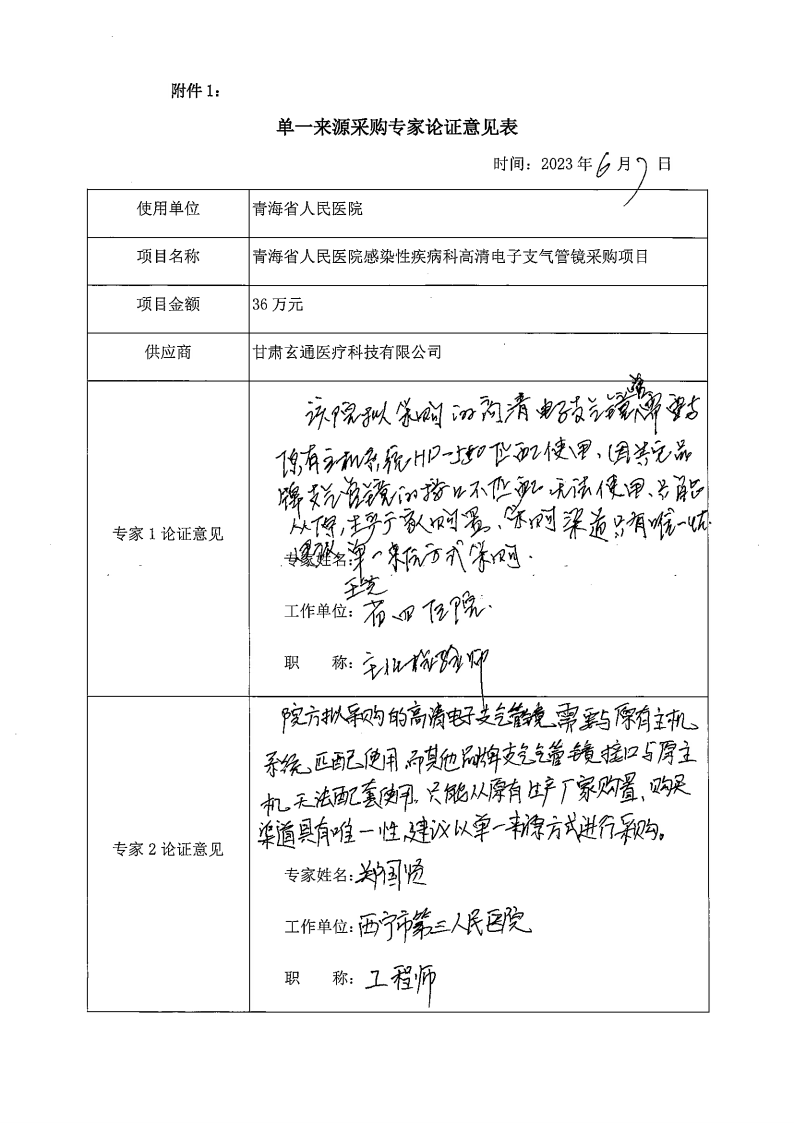 附件1：
单一来源采购专家论证意见表
时间：2023年6月7日
使用单位 青海省人民医院
项目名称 青海省人民医院感染性疾病科高清电子支气管镜采购项目
项目金额 36万元
供应商 甘肃玄通医疗科技有限公司
专家1论证意见
该院拟采购的高清电子支气管镜需要与
原有主机系统HD-550匹配使用，因其它品
牌支气管镜的接口不匹配无法使用，只能
从原生产厂家购置，采购渠道只有唯一性
建议单一来源方式采购.
专家姓名：
工作单位：省四医院.
职 称：主任检验师
专家2论证意见
院方拟采购的高清电子支气管镜，需要与原有主机
系统匹配使用，而其他品牌支气管镜接口与原主
机无法配套使用。只能从原有生产厂家购置，购买
渠道具有唯一性，建议以单一来源方式进行采购。
专家姓名：郑国贤
工作单位：西宁市第三人民医院
职 称：工程师